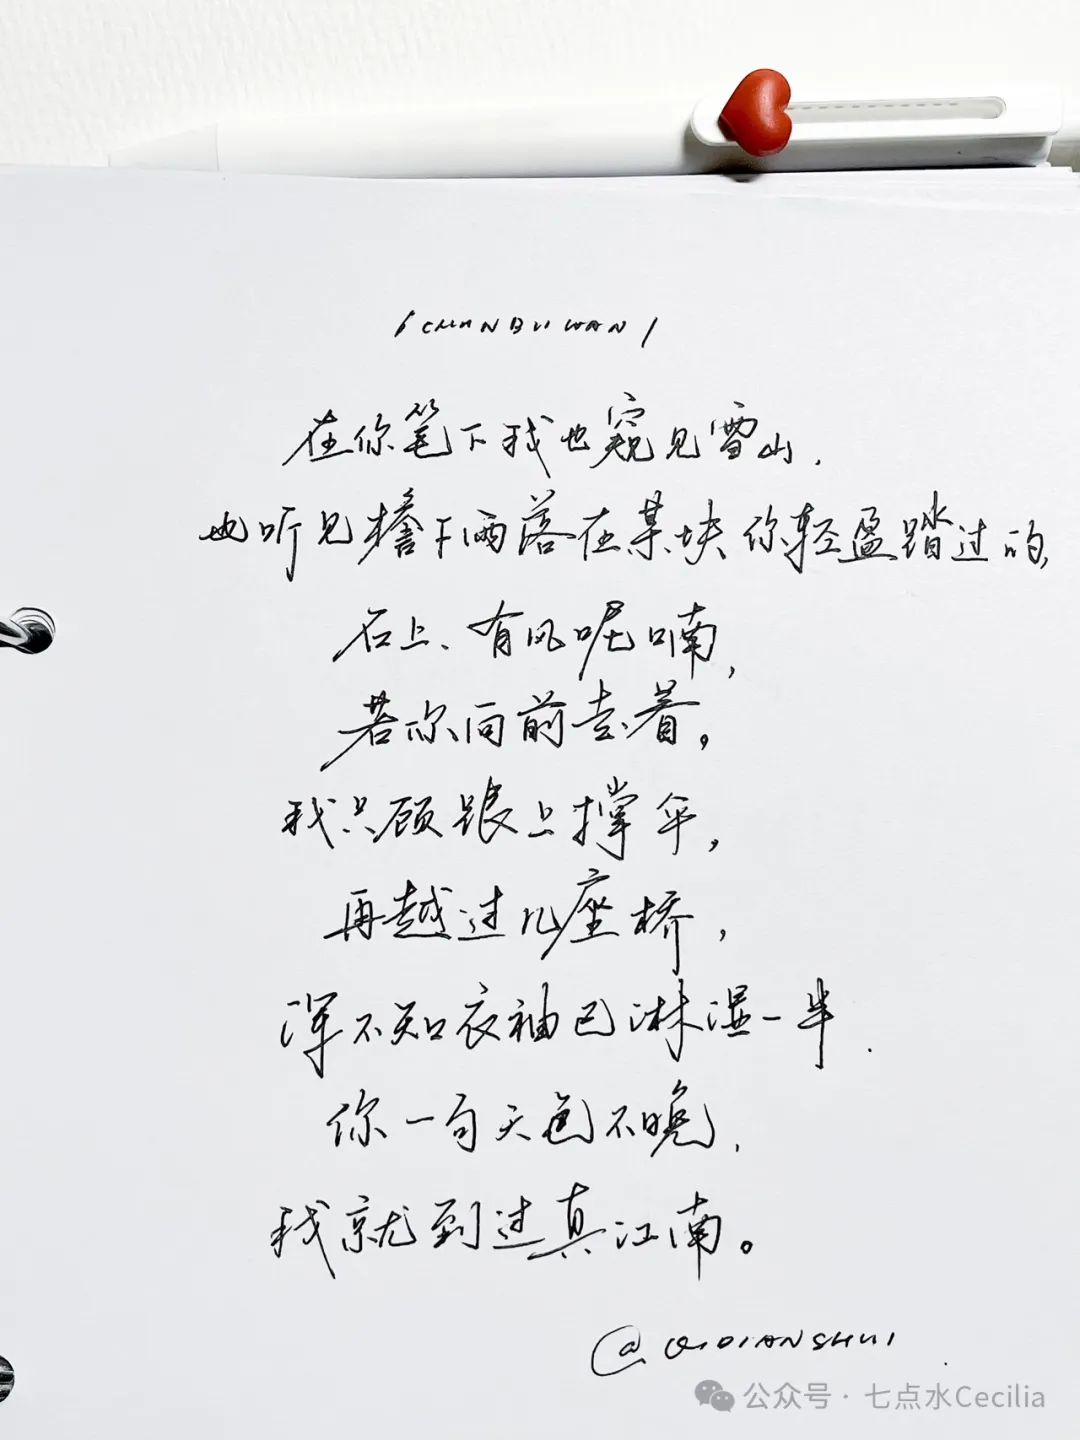 / CHUN BU WAN /
在你笔下我也窥见雪山,
也听见檐下雨落在某块你轻盈踏过的,
石上、有风呢喃,
若你向前去着。
我只顾跟上撑伞,
再越过几座桥,
浑不知衣袖已淋湿一半.
你一句天色不晚,
我就到过真江南。
@QIDIANSHUI
公众号·七点水Cecilia